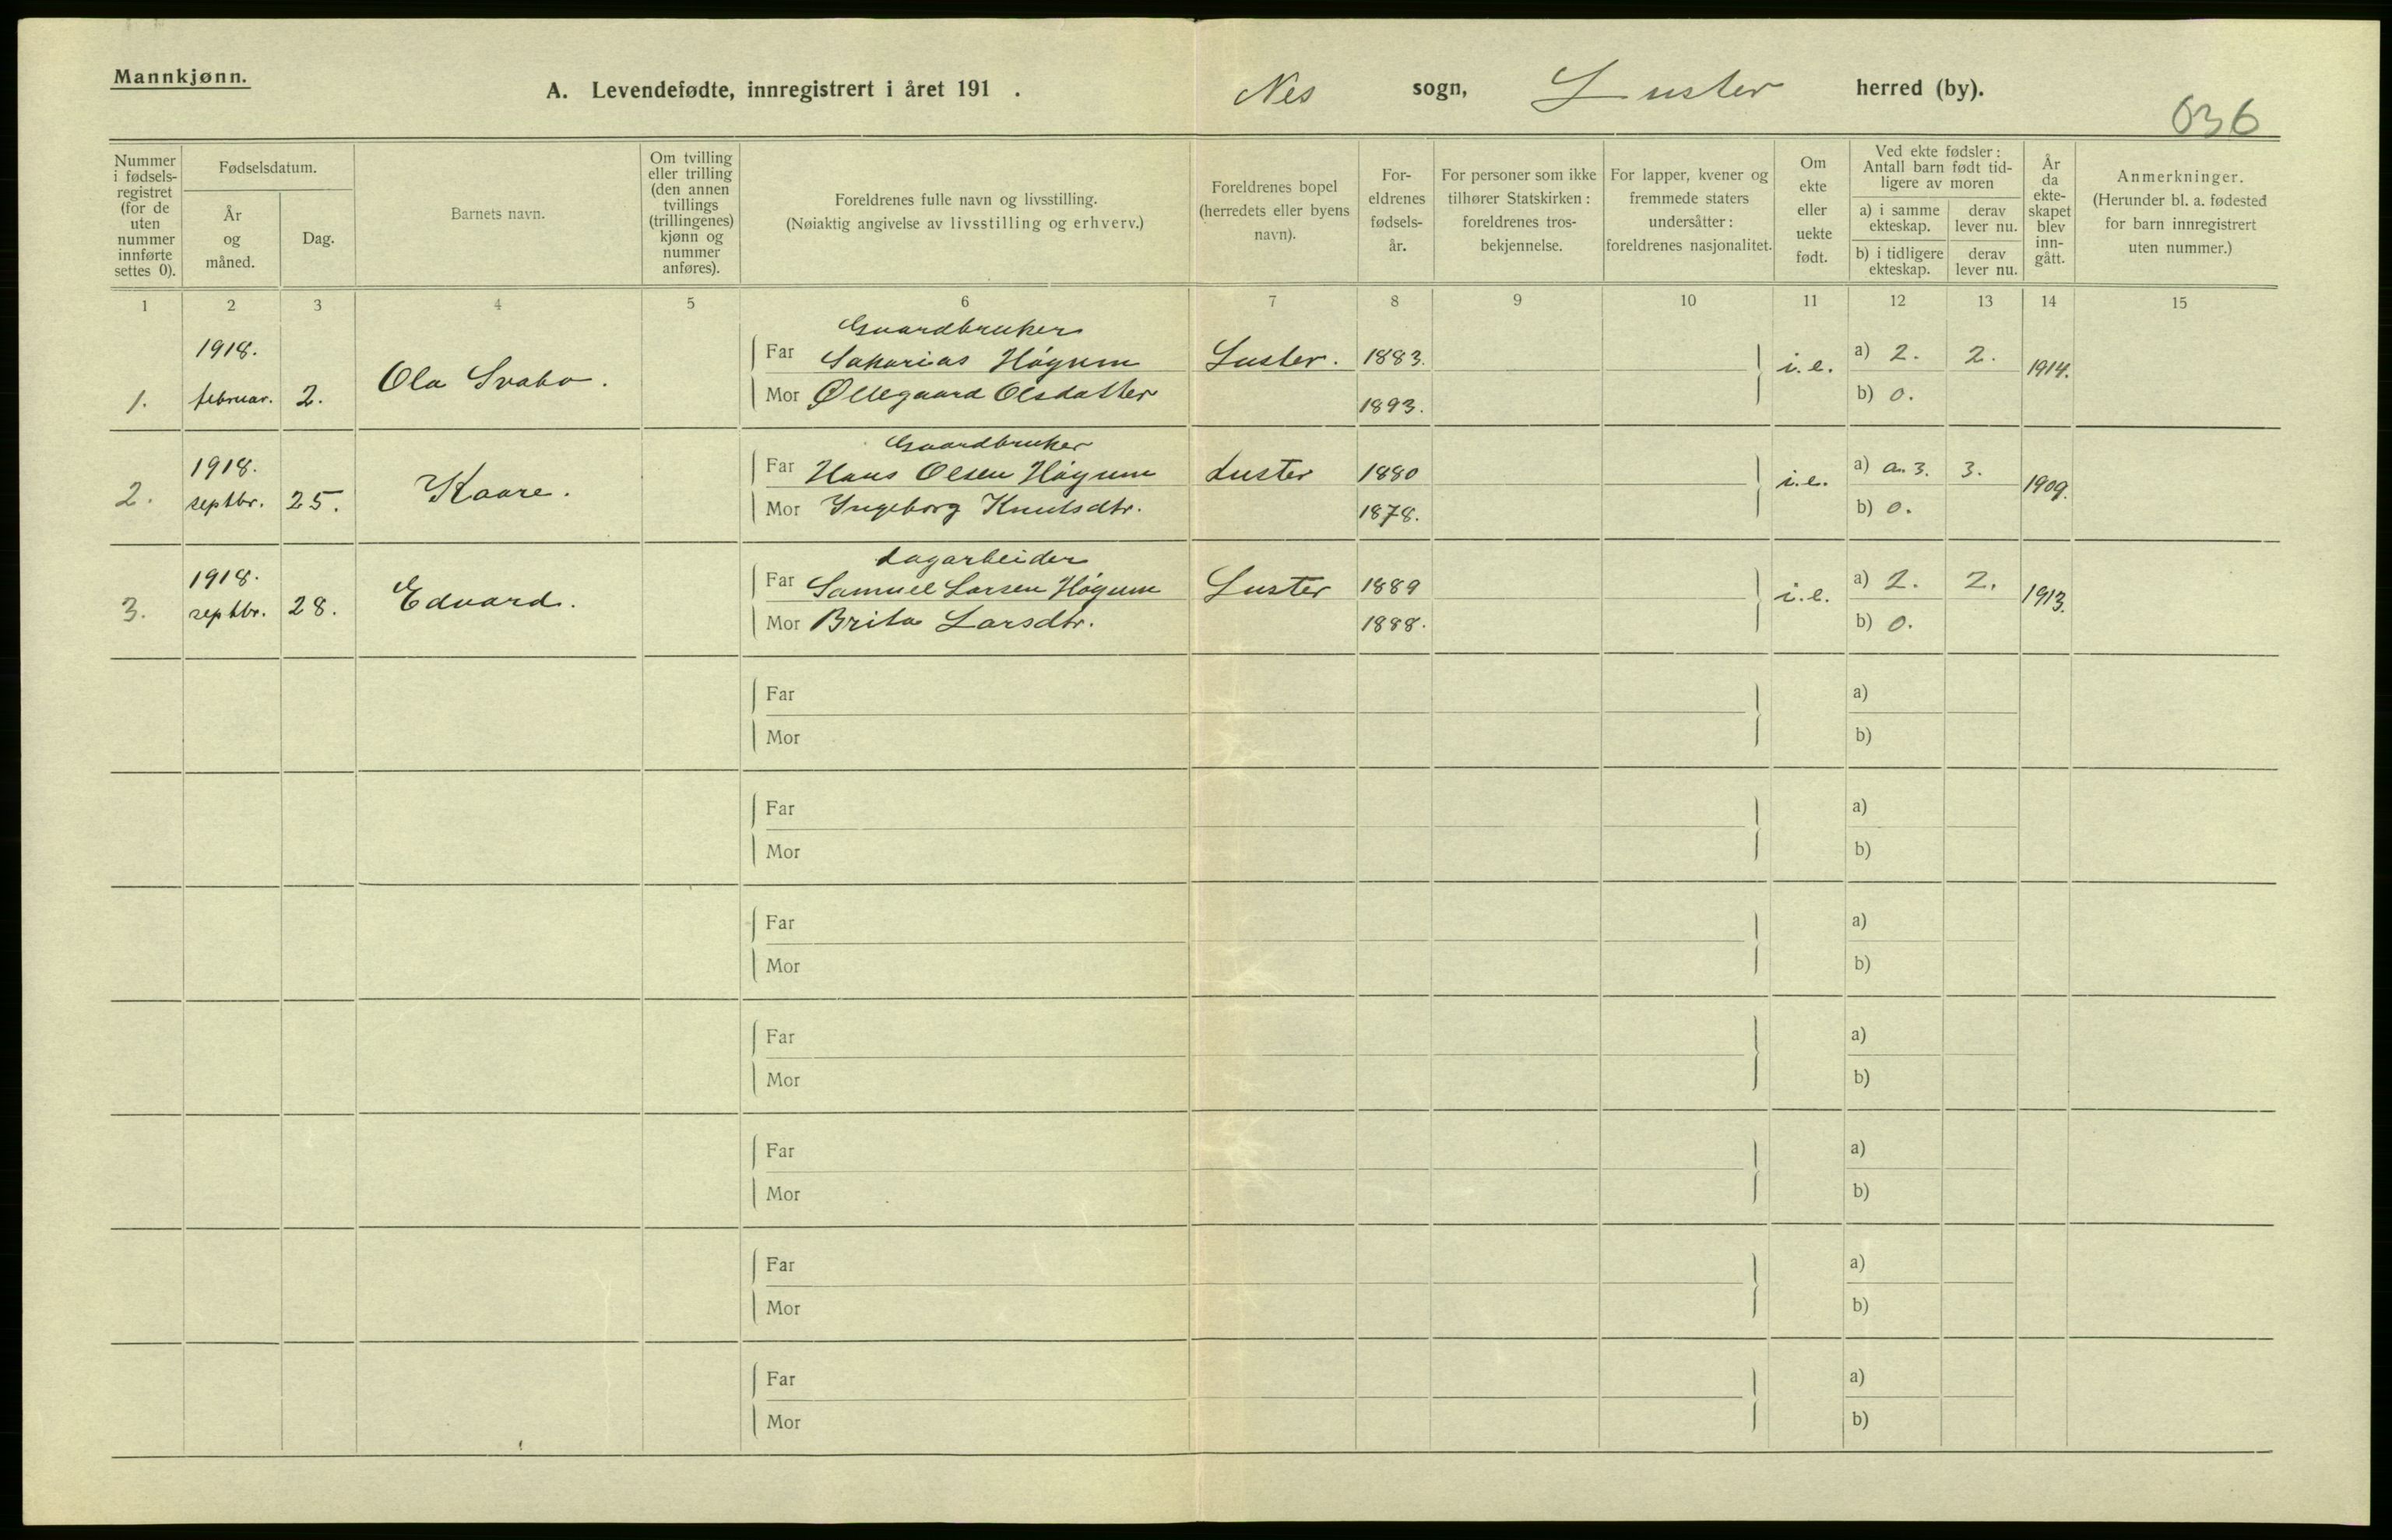 Mannkjønn.
A. Levendefødte, innregistrert i året 191 .
Nes sogn, Luster herred (by).
036
Nummer i fødsels-registret (for de uten nummer innførte settes 0).
Fødselsdatum.
År og måned.
Dag.
Barnets navn.
Om tvilling eller trilling (den annen tvillings (trillingenes) kjønn og nummer anføres).
Foreldrenes fulle navn og livsstilling.
(Nøiaktig angivelse av livsstilling og erhverv.)
Foreldrenes bopel (herredets eller byens navn).
For-eldrenes fødsels-år.
For personer som ikke tilhører Statskirken: foreldrenes tros-bekjennelse.
For lapper, kvener og fremmede staters undersåtter: foreldrenes nasjonalitet.
Om ekte eller uekte født.
Ved ekte fødsler: Antall barn født tid-ligere av moren
a) i samme ekteskap.
derav lever nu.
b) i tidligere ekteskap.
derav lever nu.
År da ekte-skapet blev inn-gått.
Anmerkninger.
(Herunder bl. a. fødested for barn innregistrert uten nummer.)
1 2 3 4 5 6 7 8 9 10 11 12 13 14 15
Gaardbruker
1918.
Far Sakarias Høgum Luster. 1883. i.e. a) 2. 2. 1914.
1. februar. 2. Ola Svabo. Mor Øllegaard Olsdatter 1893. b) 0.
Gaardbruker
1918.
Far Hans Olsen Høgum Luster 1880 i.e. a) a. 3. 3. 1909.
2. septbr. 25. Kaare. Mor Ingeborg Knutsdtr. 1878. b) 0.
Dagarbeider
1918.
Far Samuel Larsen Høgum Luster 1889 i.e. a) 2. 2. 1913.
3. septbr. 28. Edvard. Mor Brita Larsdtr. 1888. b) 0.
Far a)
Mor b)
Far a)
Mor b)
Far a)
Mor b)
Far a)
Mor b)
Far a)
Mor b)
Far a)
Mor b)
Far a)
Mor b)